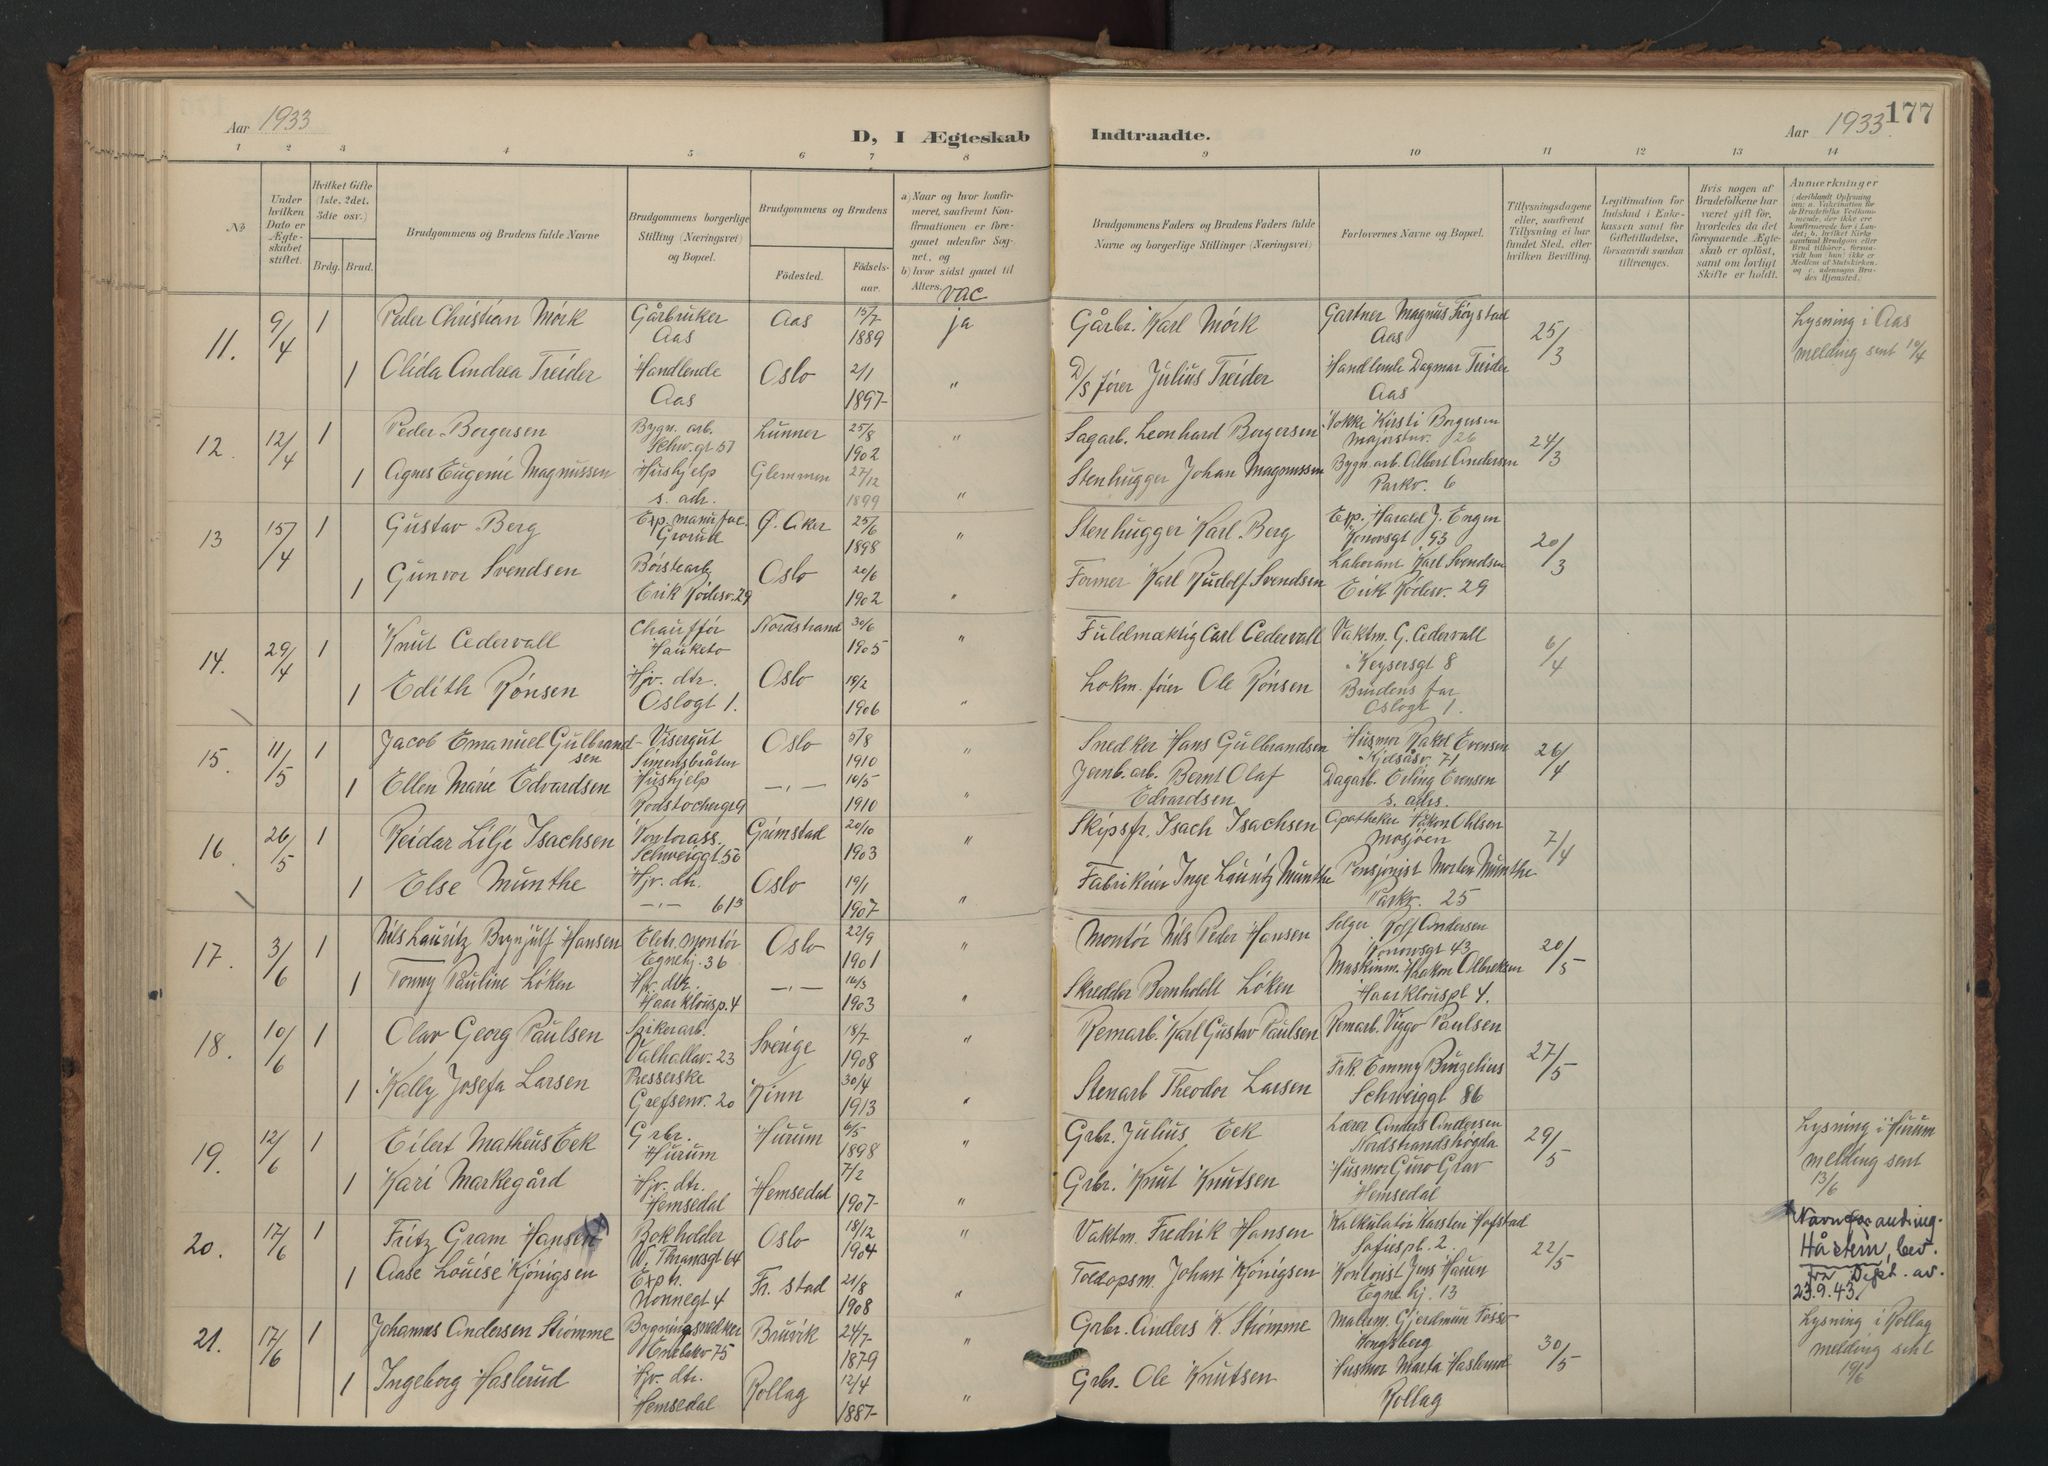 Aar 1933
D, I Ægteskab Indtraadte.
Aar 1933. 177
1 2 3 4 5 6 7 8 9 10 11 12 13 14
№
Under hvilken Dato er Ægteskabet stiftet.
Hvilket Gifte (1ste, 2det, 3die osv.)
Brdg. Brud.
Brudgommens og Brudens fulde Navne
Brudgommens borgerlige Stilling (Næringsvei) og Bopæl.
Brudgommens og Brudens
Födested. Födselsaar.
a) Naar og hvor konfirmeret, saafremt Konfirmationen er foregaaet udenfor Sognet, og
b) hvor sidst gaaet til Alters.
vac
Brudgommens Faders og Brudens Faders fulde Navne og borgerlige Stillinger (Næringsvei)
Forlovernes Navne og Bopæl.
Tillysningsdagene eller, saafremt Tillysning ei har fundet Sted, efter hvilken Bevilling.
Legitimation for Indskud i Enkekassen samt for Giftetilladelse, forsaavidt saadan tiltrænges.
Hvis nogen af Brudefolkene har været gift før, hvorledes da det foregaaende Ægteskab er oplöst, samt om lovligt Skifte er holdt.
Anmærkninger
11. 9/4 1 Peder Christian Mørk Gårbruker Aas Aas 15/7 1889 ja Gårbr. Karl Mørk Gartner Magnus Frøystad Aas 25/3 Lysning i Aas melding sent 10/4
1 Olida Andrea Treider Handlende Aas Oslo 2/1 1897 " D/s fører Julius Treider Handlende Dagmar Treider Aas
12. 12/4 1 Peder Borgersen Bygn. arb. Schw.gt 57 Lunner 25/8 1902 " Sagarb. Leonhard Borgersen Kirsti Borgersen Majorstuv. 26 24/3
1 Agnes Eugenie Magnussen Hushjelp s. adr. Glemmen 27/12 1899 " Stenhugger Johan Magnussen Bygn. arb. Albert Andersen Parkv. 6
13 15/4 1 Gustav Berg Exp. manufac. Grorud Ø. Aker 25/6 1898 " Stenhugger Karl Berg Exp. Harald J. Engen Konowsgt 93 20/3
1 Gunvor Svendsen Børstearb Erik Rødesv. 29 Oslo 20/6 1902 " Former Karl Rudolf Svendsen Laborant Karl Svendsen Erik Rödesv. 29
14. 29/4 1 Knut Cedervall Chauffør Hauketo Nordstrand 30/6 1905 " Fuldmæktig Carl Cedervall Vaktm. G. Cedervall Keysersgt 8 6/4
1 Edith Rönsen Hjv. dtr. Oslogt 1. Oslo 1906 " Lokm. fører Ole Rönsen Brudens far Oslogt 1.
15. 11/5 1 Jacob Emanuel Gulbrandsen Visergut Simensbråten Oslo 5/8 1910 " Snedker Hans Gulbrandsen Husmor Rakel Evensen Kjelsåsv. 71 26/4
1 Ellen Marie Edvardsen Hushjelp -"- 16/5 1910 " Jernb. arb. Bernt Olaf Edvardsen Dagarb. Erling Evensen s. adrs.
16. 26/5 1 Reidar Lilje Isachsen Kontorass. Schweiggt 50 Grimstad 20/10 1903 Skipsfr. Isach Isachsen Apotheker Håkon Ohlsen Mosjøen 7/4
1 Else Munthe Hjv. dtr. -"- Oslo 19/1 1907 " Fabrikeier Inge Lauritz Munthe Pensjonist Morten Munthe Parkv. 25
17. 3/6 1 Nils Lauritz Brynjulf Hansen Elctr. montör Egnehj. 36 Oslo 22/9 1901 " Montör Nils Peder Hansen Selger Rolf Andersen Konowsgt 43 20/5
1 Tonny Pauline Løken Hjv. dtr. Haarklousp. 4 -"- 1903 " Skredder Bernholdt Løken Maskinm. Haakon Haarklouspl 4.
18. 10/6 1 Olav Georg Paulsen Spikerarb. Valhallav. 23 Sverige 18/7 1908 " Remarb. Karl Gustav Paulsen Remarb. Viggo Paulsen 27/5
1 Kally Josefa Larsen Presserske Grefsenv. 20 Kinn 30/4 1913 " Stenarb Theodor Larsen Frk. Emmy Schweiggt 86
19. 12/6 1 Eilert Matheus Eek Grbr. Hurum Hurum 6/5 1898 " Grbr. Julius Eek Lærer Anders Andersen Nordstrandshøgda 29/5 Lysning i Hurum melding sent 13/6
1 Kari Markegård Hjv. dtr. Hemsedal Hemsedal 7/2 1907 " Grbr. Knut Knutsen Husmor Guro Grav Hemsedal
20. 17/6 1 Fritz Gram Hansen Bokholder W. Thranesgt 64 Oslo 18/12 1904 Vaktm. Fredrik Hansen Kalkulatör Karsten Hofstad Sofiespl. 2. 22/5 Navneforandring. Håstein, bev. fra Dept. av. 23.9.43.
1 Aase Louise Kjönigsen Exptr. Nonnegt 4 Fr. stad 21/8 1908 " Toldopsm. Johan Kjönigsen Kontorist Jens Hauen Egnehj. 13
21. 17/6 1 Johannes Andersen Strømme Bygningsnedker Enebakv 75 Bruvik 24/7 1879 Grbr. Anders K. Strømme Kongsberg 30/5 Lysning i Rollag melding sent 19/6
1 Ingeborg Haslerud Hjv. dtr. Hemsedal Rollag 12/4 1887 " Grbr. Ole Knutsen Husmor Marta Haslerud Rollag